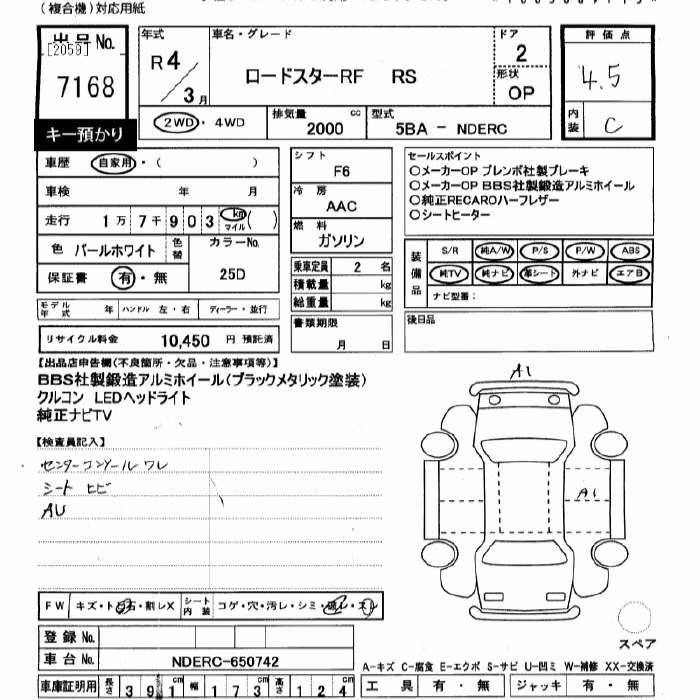 (複合機)対応用紙
出品 No.
[2059]
7168
キー預かり
年式
R4/3月
車名・グレード
ロードスターRF RS
ドア
2
形状
OP
評価点
4.5
内装
C
2WD・4WD
排気量 cc
2000
型式
5BA - NDERC
車歴 自家用・( )
車検 年 月
走行 1万7千903 km マイル ( )
色 パールホワイト 色替
カラーNo.
25D
保証書 有・無
シフト
F6
冷房
AAC
燃料
ガソリン
乗車定員 2 名
積載量 kg
総重量 kg
書類期限
月 日
セールスポイント
○メーカーOP ブレンボ社製ブレーキ
○メーカーOP BBS社製鍛造アルミホイール
○純正RECAROハーフレザー
○シートヒーター
装備品
S/R 純A/W P/S P/W ABS
純TV 純ナビ 革シート 外ナビ エアB
ナビ型番:
後日品
モデル年式 年 ハンドル 左・右 ディーラー・並行
リサイクル料金 10,450 円 預託済
【出品店申告欄(不良箇所・欠品・注意事項等)】
BBS社製鍛造アルミホイール(ブラックメタリック塗装)
クルコン LEDヘッドライト
純正ナビTV
【検査員記入】
センターコンソール ワレ
シート ヒビ
AU
A1
A1
FW キズ・ト石・割レX シート内装 コゲ・穴・汚レ・シミ・
スペア
登録 No.
車台 No. NDERC-650742
A-キズ C-腐食 E-エクボ S-サビ U-凹ミ W-補修 XX-交換済
車庫証明用 長さ 391 cm 幅 173 cm 高さ 124 cm
工具 有・無 ジャッキ 有・無